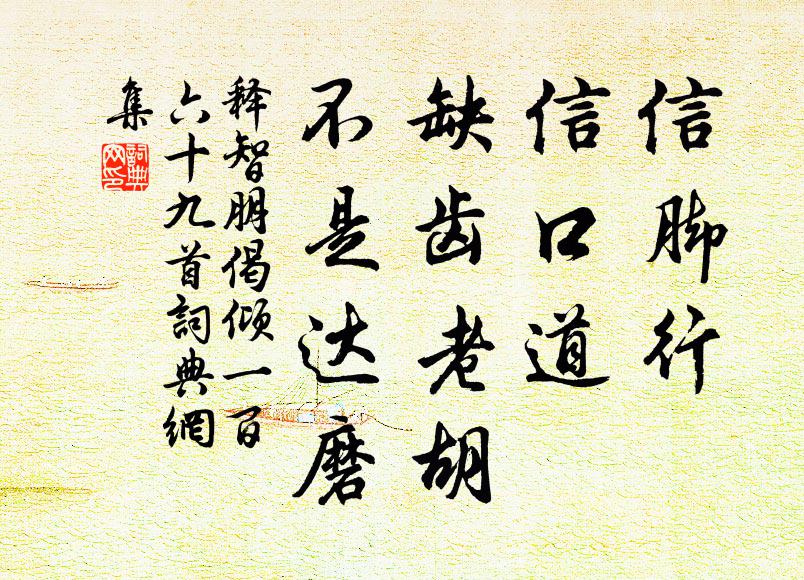 信脚行
信口道
缺齿老胡
不是达磨
释智朋偈倾一百
六十九首詞典網
集
詞典
网印